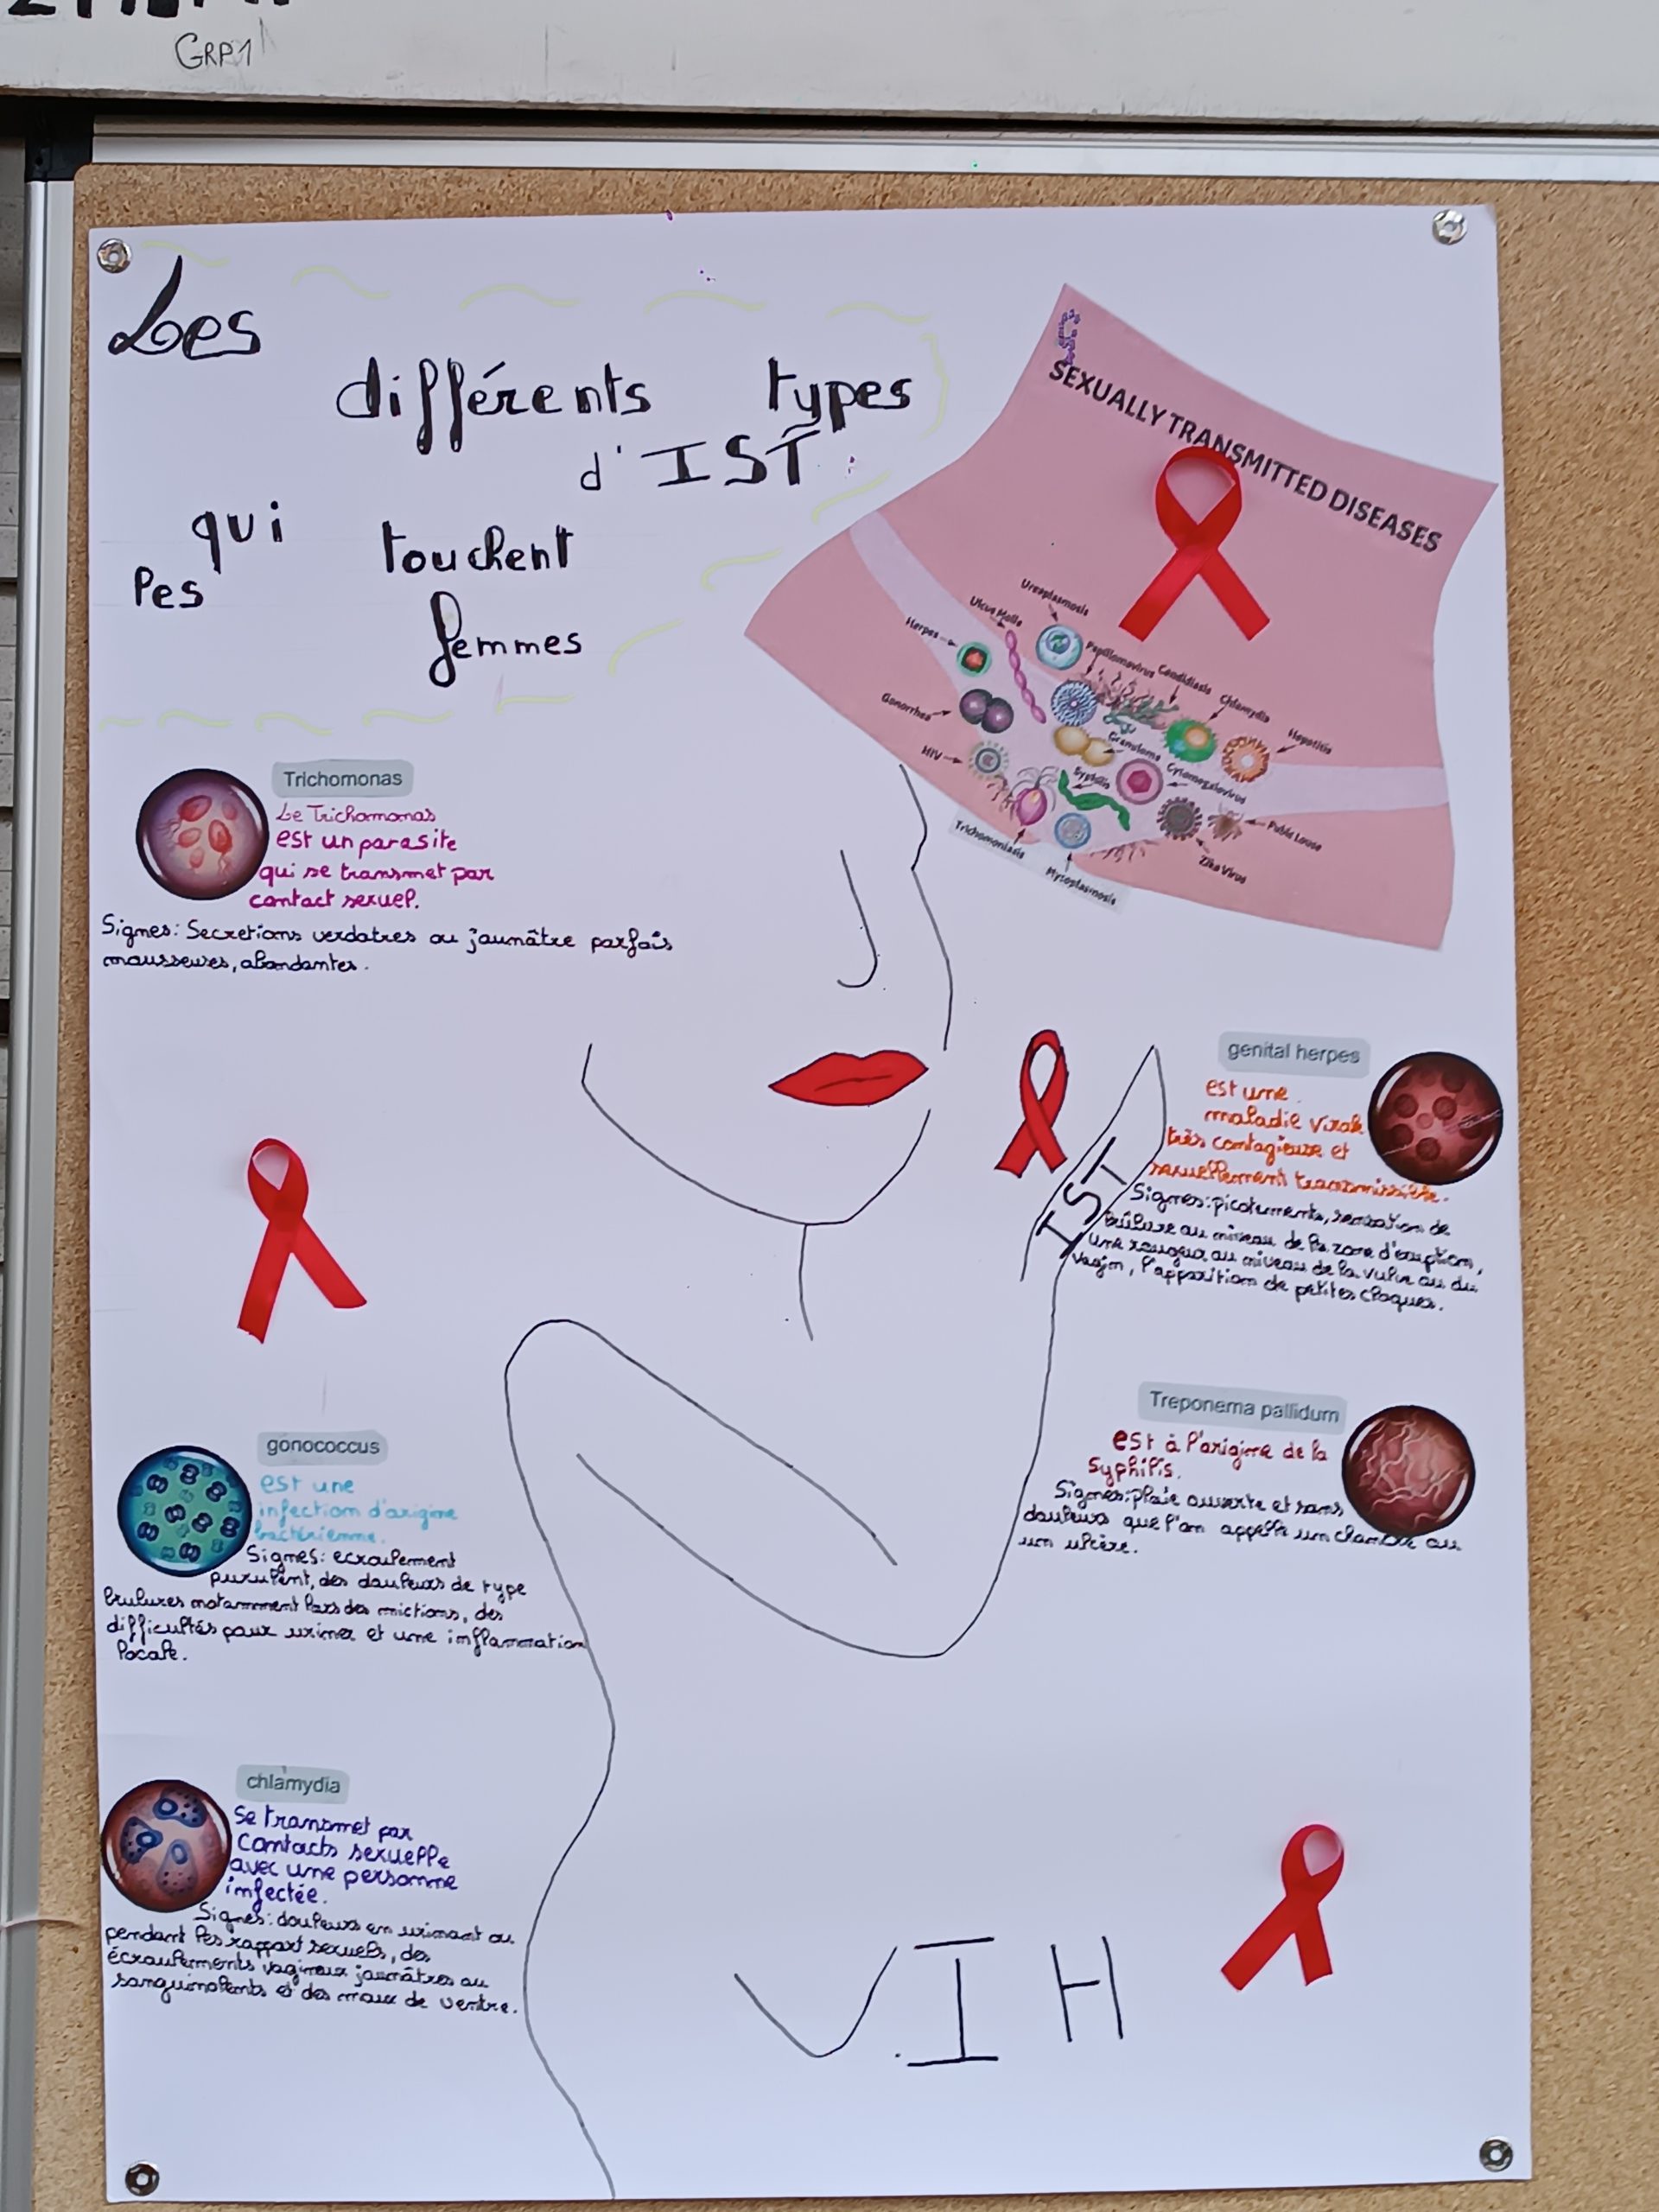 GRP1
Les
différents types
d'IST
qui touchent
les
femmes
SEXUALLY TRANSMITTED DISEASES
Ureaplasmosis
Ulcus Molle
Herpes
Papillomavirus
Candidiasis
Chlamydia
Hepatitis
Gonorrhea
Granuloma
HIV
Syphilis
Cytomegalovirus
Pubic Louse
Trichomoniasis
Zika Virus
Mycoplasmosis
Trichomonas
Le Trichomonas
est un parasite
qui se transmet par
contact sexuel.
Signes: Secretions verdatres ou jaunâtre parfois
mousseuses, abondantes.
genital herpes
est une
maladie virale
très contagieuse et
sexuellement transmissible.
Signes: picotements, sensation de
brûlure au niveau de la zone d'éruption,
une rougeur au niveau de la vulve ou du
vagin, l'apparition de petites cloques.
IST
gonococcus
est une
infection d'origine
bactérienne.
Signes: ecroulement
purulent, des douleurs de type
brulures notamment lors des mictions, des
difficultés pour uriner et une inflammation
locale.
Treponema pallidum
est à l'origine de la
syphilis.
Signes: plaie ouverte et sans
douleurs que l'on appelle un chancre ou
un ulcère.
chlamydia
Se transmet par
contacts sexuelle
avec une personne
infectée.
Signes: douleurs en urinant ou
pendant les rapport sexuels, des
écroulements vaginaux jaunâtres ou
sanguinolents et des maux de ventre.
V.IH